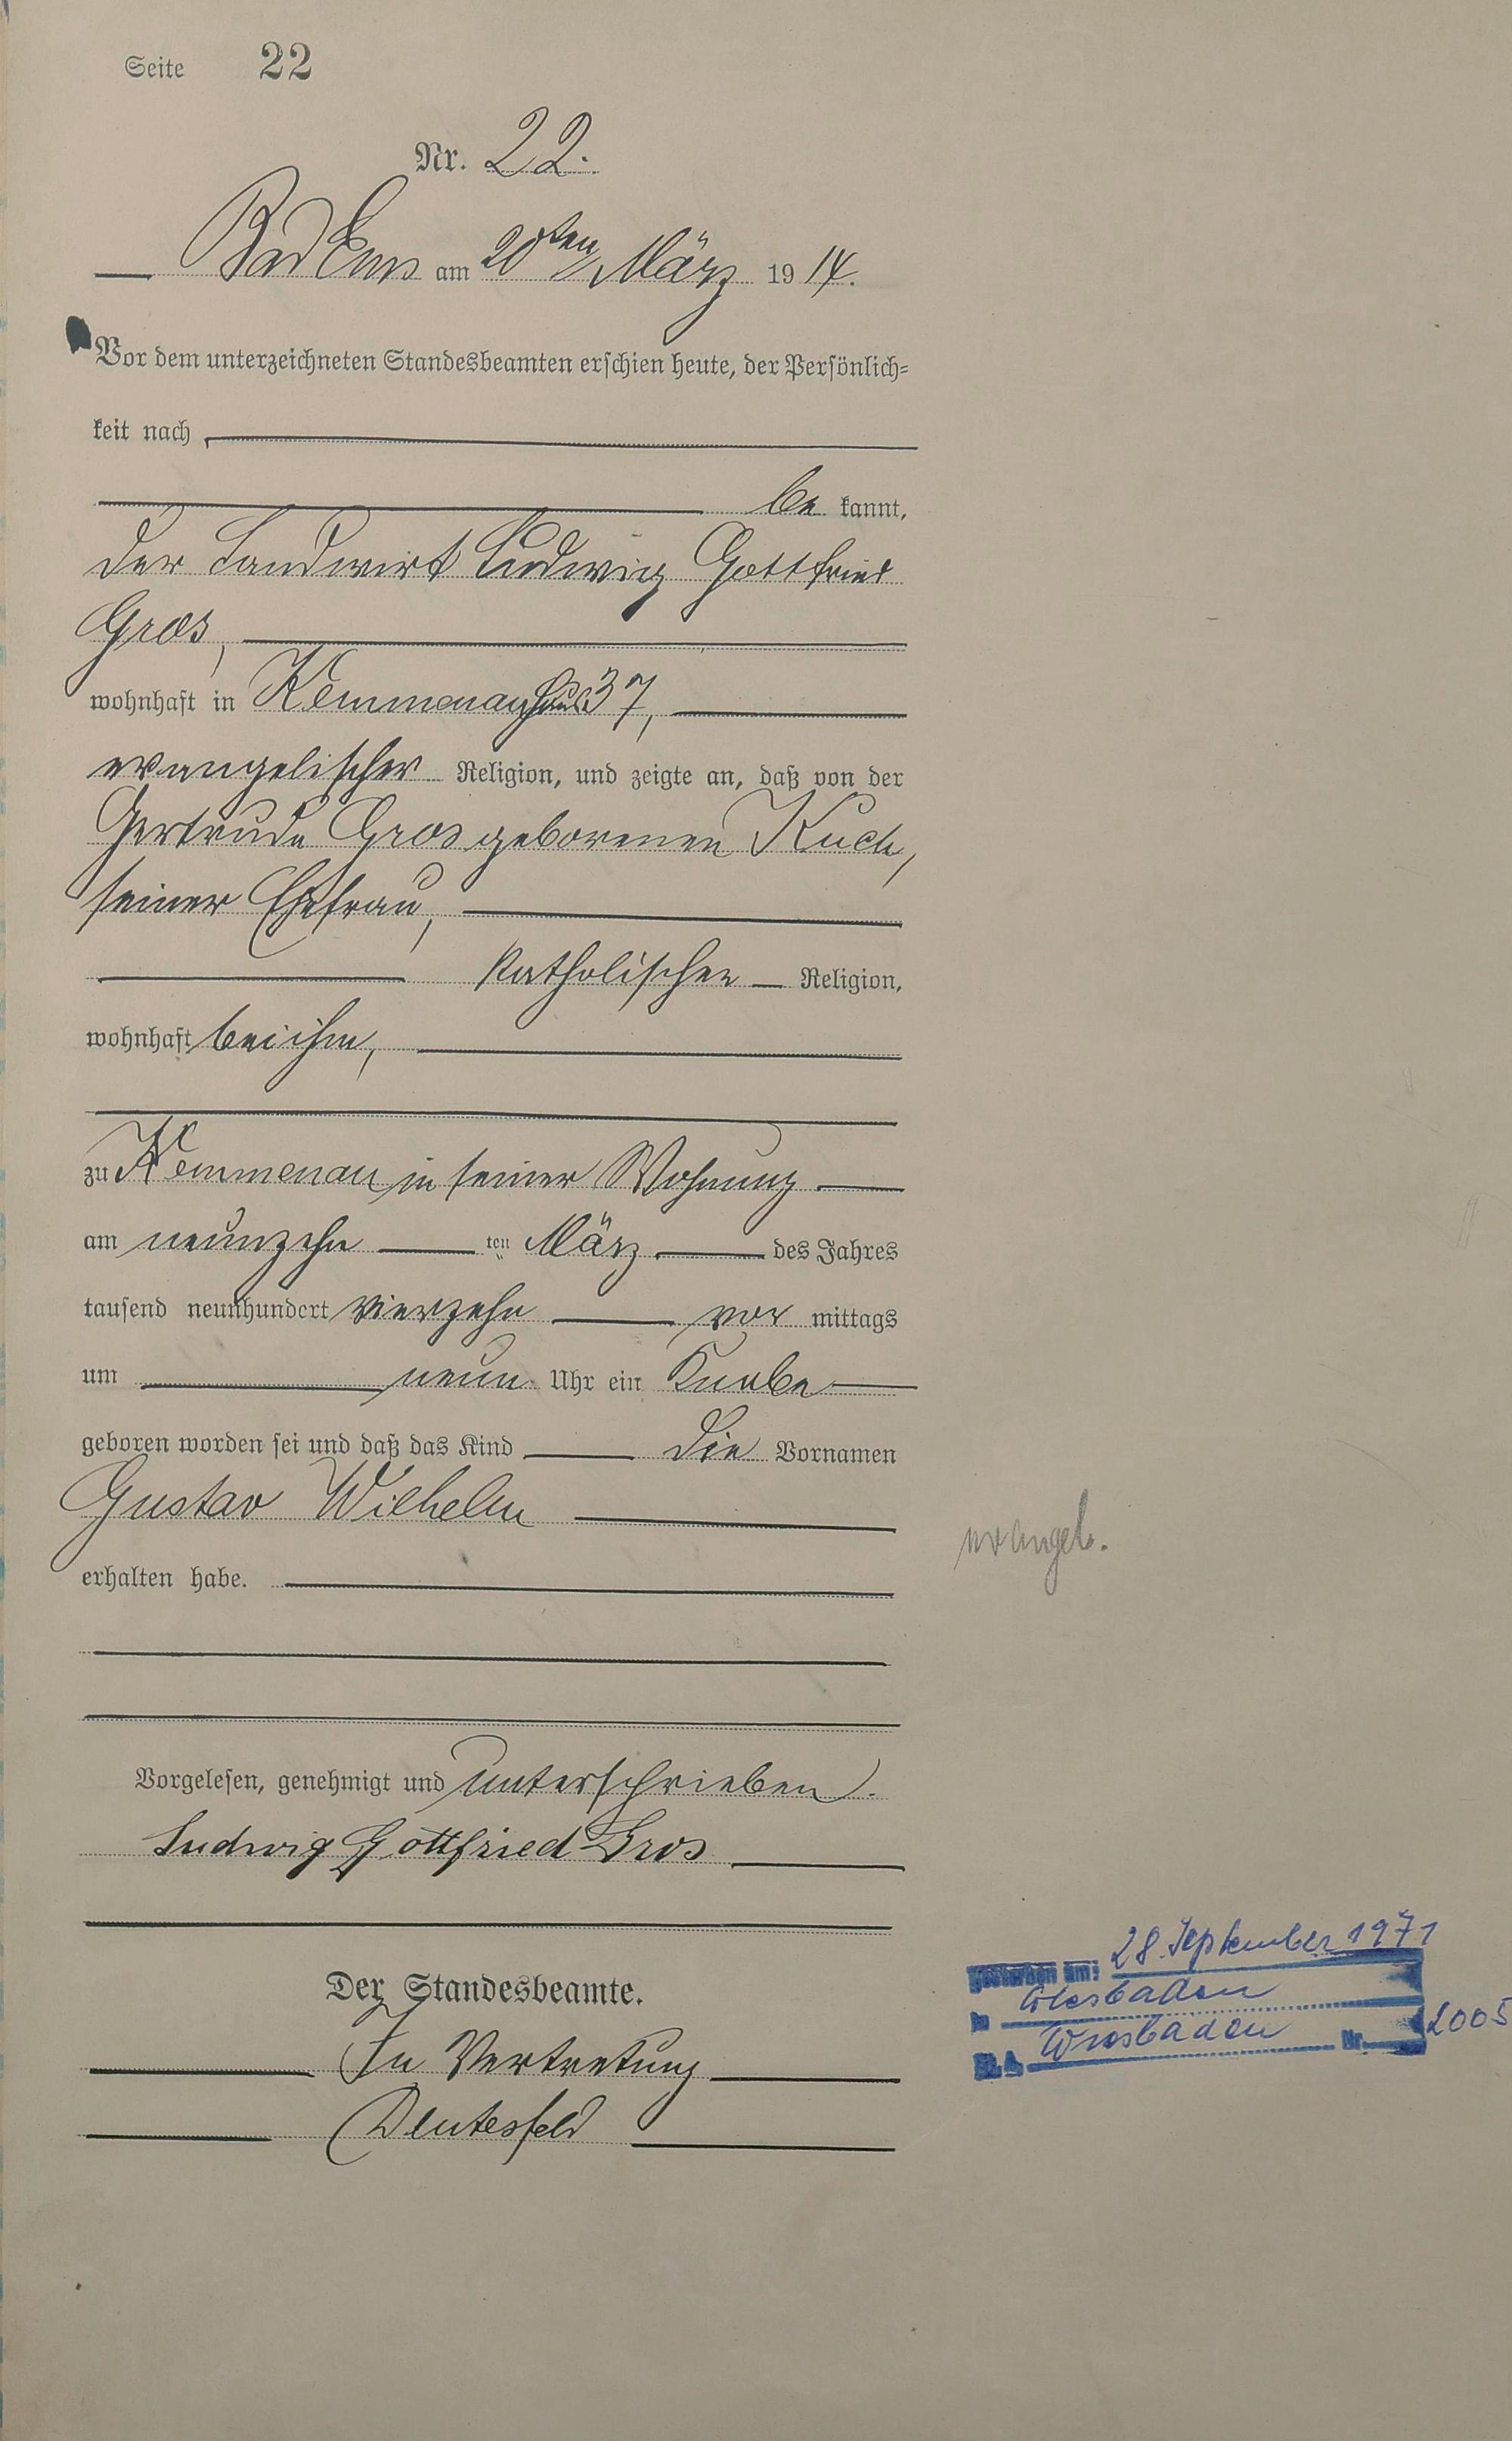 Seite 22
Nr. 22.
Bad Ems am 20ten März 1914.
Vor dem unterzeichneten Standesbeamten erschien heute, der Persönlich=
keit nach
be kannt,
der Landwirt Ludwig Gottfried
Gros,
wohnhaft in Kemmenau Haus 37,
evangelischer Religion, und zeigte an, daß von der
Gertrude Gros geborenen Kuch,
seiner Ehefrau,
katholischer Religion,
wohnhaft bei ihm,
zu Kemmenau in seiner Wohnung
am neunzehn ten März des Jahres
tausend neunhundert vierzehn vor mittags
um neun Uhr ein Knabe
geboren worden sei und daß das Kind die Vornamen
Gustav Wilhelm
erhalten habe.
evangel.
Vorgelesen, genehmigt und unterschrieben.
Ludwig Gottfried Gros
Der Standesbeamte.
In Vertretung
gestorben am: 28. September 1971
in Wiesbaden
St. A. Wiesbaden Nr. 2005